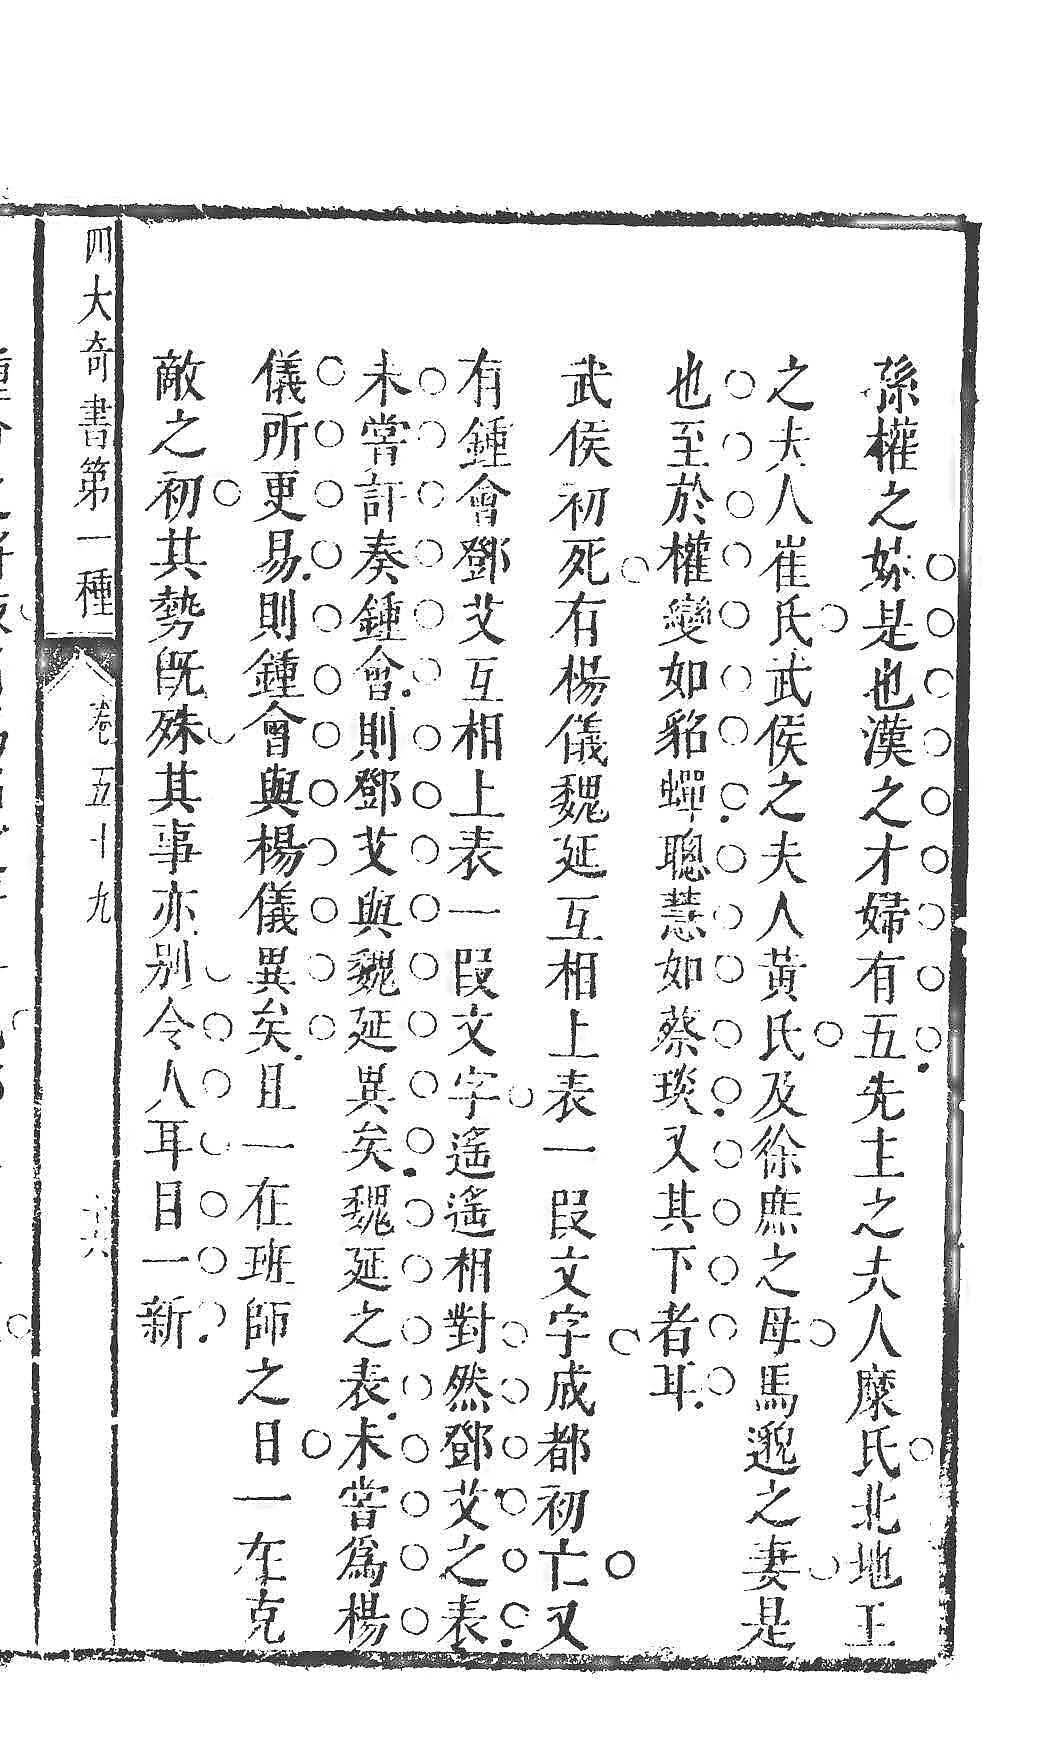 孫權之妹是也漢之才婦有五先主之夫人糜氏北地王
之夫人崔氏武侯之夫人黃氏及徐庶之母馬邈之妻是
也至於權變如貂蟬聰慧如蔡琰又其下者耳
武侯初死有楊儀魏延互相上表一段文字成都初亡又
有鍾會鄧艾互相上表一段文字遙遙相對然鄧艾之表
未嘗訐奏鍾會則鄧艾與魏延異矣魏延之表未嘗爲楊
儀所更易則鍾會與楊儀異矣且一在班師之日一在克
敵之初其勢旣殊其事亦別令人耳目一新
四大奇書第一種 卷五十九